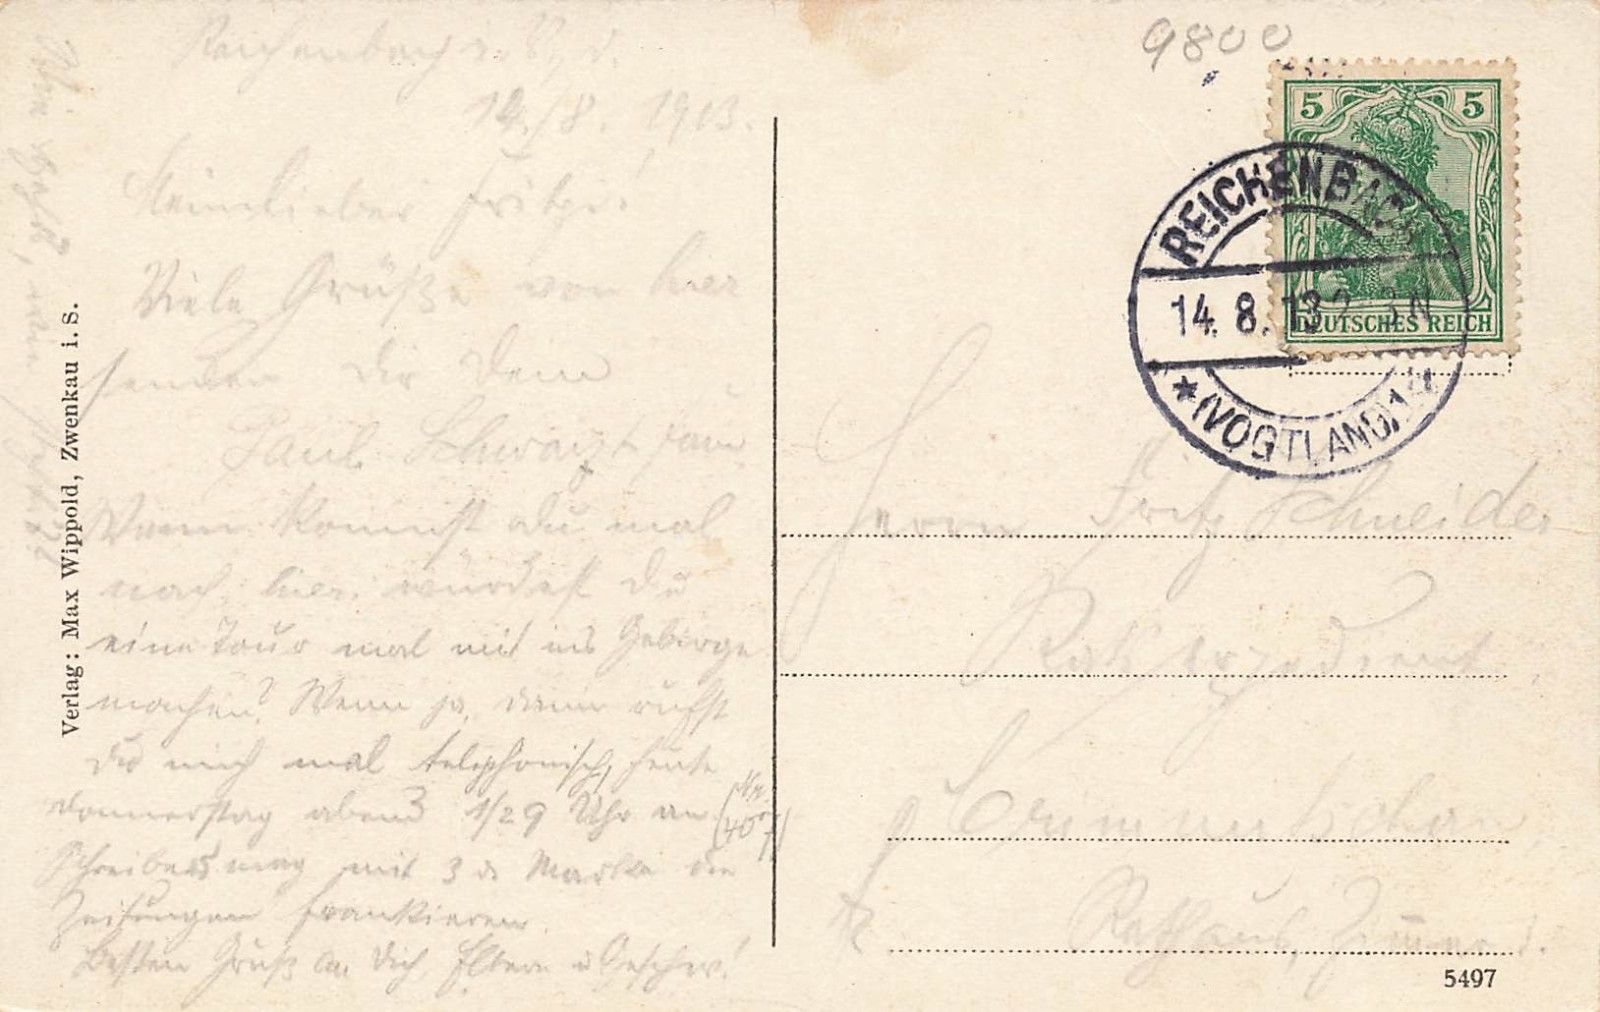 9800
5 5
DEUTSCHES REICH
REICHENBACH
14. 8. 13 2-3 N
* (VOGTLAND) 1
Reichenbach i. V., d.
14./8. 1913.
Mein lieber Fritze!
Viele Grüße von hier
senden dir dein
Paul
Wann kommst du mal
nach hier. würdest du
eine Tour mal mit ins Gebirge
machen? Wenn ja, dann rufst
du mich mal telephonisch, heute
Donnerstag abend 1/2 9 Uhr an (Nr. 407)
mit 3 Marke die
Zeitungen frankieren.
Besten Gruß an Dich, Eltern u Geschw.!
Verlag: Max Wippold, Zwenkau i. S.
Herrn Fritz Schneider
Crimmitschau
Rathaus, Zimmer
5497